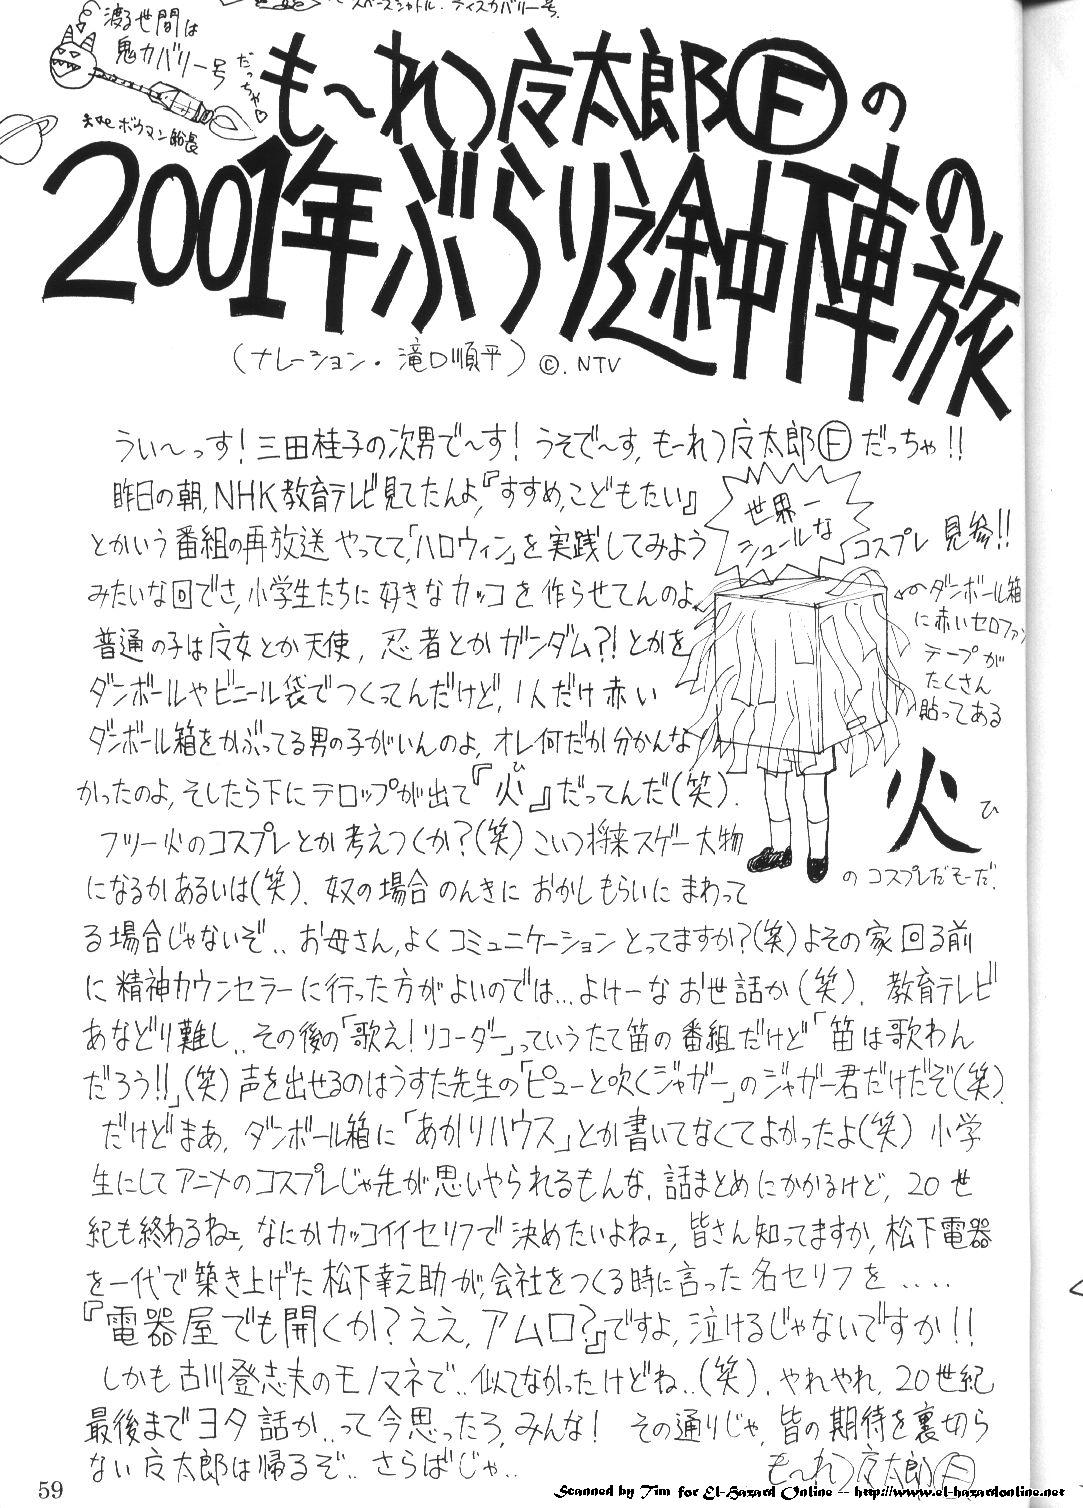 スペースシャトル・ディスカバリー号.
渡る世間は
鬼カバリー号
だっちゃ♡
ボウマン船長
も〜れつ太郎Ⓕの
2001年ぶらり途中下車の旅
(ナレーション・滝口順平) ©.NTV
うぃ〜っす! 三田桂子の次男で〜す! うそで〜す, も〜れつ太郎Ⓕだっちゃ!!
昨日の朝, NHK教育テレビ見てたんよ,『すすめ、こどもたい』
とかいう番組の再放送やってて,「ハロウィン」を実践してみよう
みたいな回でさ, 小学生たちに好きなカッコを作らせてんのよ,
普通の子は魔女とか天使, 忍者とかガンダム?! とかを
ダンボールやビニール袋でつくってんだけど, 1人だけ赤い
ダンボール箱をかぶってる男の子がいんのよ, オレ何だか分かんな
かったのよ, そしたら下にテロップが出て『火』だってんだ(笑).
フツー火のコスプレとか考えつくか?(笑) こいつ将来スゲー大物
になるかあるいは(笑). 奴の場合のんきにおかしもらいにまわって
る場合じゃないぞ‥ お母さん, よくコミュニケーションとってますか?(笑) よその家回る前
に精神カウンセラーに行った方がよいのでは… よけーなお世話か(笑). 教育テレビ
あなどり難し‥ その後の「歌え! リコーダー」っていうたて笛の番組だけど「笛は歌わん
だろう!!」(笑) 声を出せるのはうすた先生の「ピューと吹くジャガー」のジャガー君だけだぞ(笑).
だけどまあ, ダンボール箱に「あかりハウス」とか書いてなくてよかったよ(笑) 小学
生にしてアニメのコスプレじゃ先が思いやられるもんな. 話まとめにかかるけど, 20世
紀も終わるねェ, なにかカッコイイセリフで決めたいよねェ, 皆さん知ってますか, 松下電器
を一代で築き上げた松下幸之助が, 会社をつくる時に言った名セリフを‥‥
『電器屋でも開くか? ええ, アムロ?』ですよ, 泣けるじゃないですか!!
しかも古川登志夫のモノマネで‥ 似てなかったけどね‥(笑). やれやれ, 20世紀
最後までヨタ話か‥って今思ったろ, みんな! その通りじゃ, 皆の期待を裏切ら
ない太郎は帰るぞ‥ さらばじゃ‥
も〜れつ太郎Ⓕ
世界一
シュールな
コスプレ見参!!
←ダンボール箱
に赤いセロファン
テープが
たくさん
貼ってある
火
ひ
のコスプレだそーだ.
59
Scanned by Tim for El-Hazard Online -- http://www.el-hazardonline.net